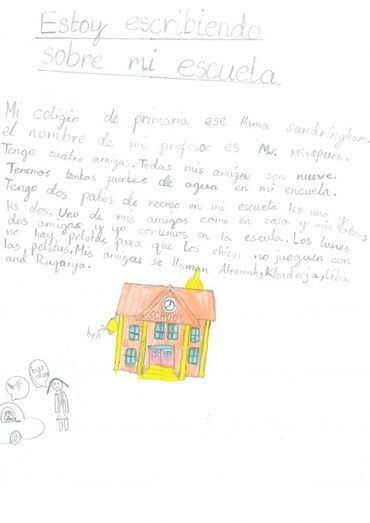 Estoy escribiendo
sobre mi escuela
Mi coligio de primaria ese llama sandringham.
el nombre de mi profesor es
Tengo cuatro amigas. Todas mis amigas son nueve.
Tenemos tantas fuentes de agua en mi encuela.
Tengo dos patios de recreo en mi escuela ks uno y
ks dos. Uno de mis amigas come en casa y mis
dos amigas y yo comemos en la escula. Los lunes
no hay pelotas para que los chicos no jueguen con
las pelotas. Mis amigas se llaman Aleemah, Khadeeja, Liba
and Ruqayya.
SCHOOL
bell
bye
bye